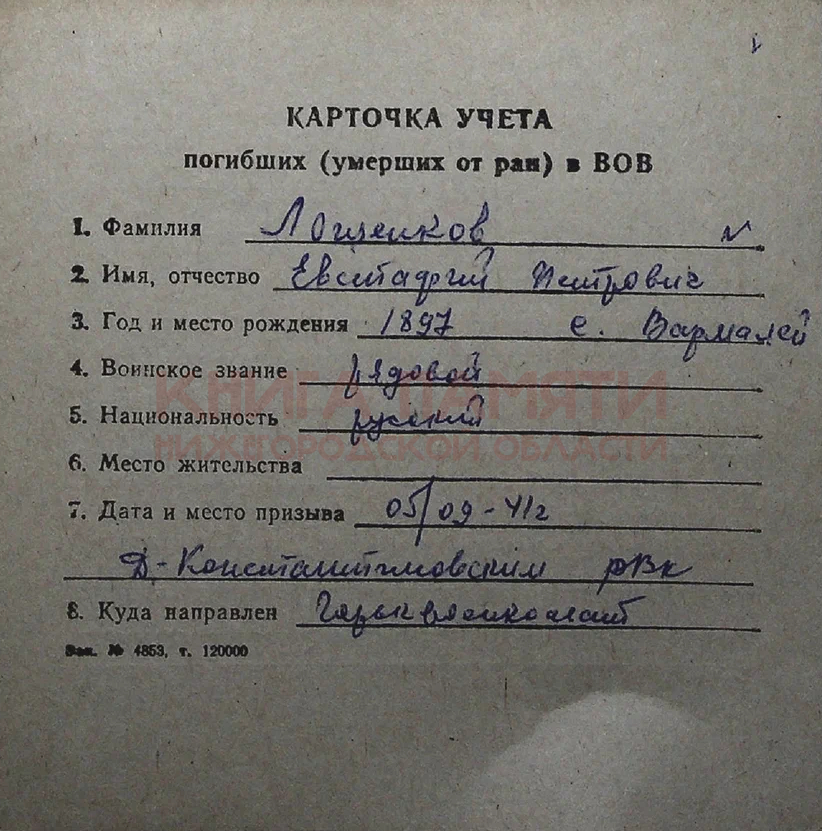 КАРТОЧКА УЧЕТА
погибших (умерших от ран) в ВОВ
1. Фамилия Лощенков
2. Имя, отчество Евстафий Петрович
3. Год и место рождения 1897 с. Вармалей
4. Воинское звание рядовой
КНИГА ПАМЯТИ
5. Национальность русский
НИЖЕГОРОДСКОЙ ОБЛАСТИ
6. Место жительства
7. Дата и место призыва 05/09-41г
Д-Константиновским РВК
8. Куда направлен
Зак. № 4853, т. 120000